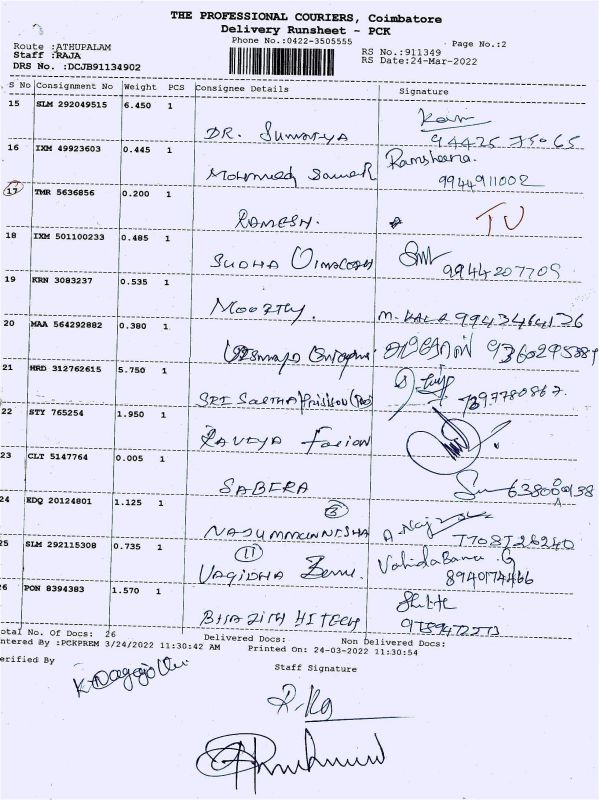 THE PROFESSIONAL COURIERS, Coimbatore
Delivery Runsheet - PCK
Phone No.:0422-3505555
Page No.:2
Route :ATHUPALAM
RS No.:911349
Staff :RAJA
RS Date:24-Mar-2022
DRS No. :DCJB91134902
S No Consignment No Weight PCS Consignee Details Signature
15 SLM 292049515 6.450 1
DR. Sumaiya 94425 75065
16 IXM 49923603 0.445 1 Ramsheena.
Mohmmed Sameer 9944911002
17 TMR 5636856 0.200 1
RAMESH.
18 IXM 501100233 0.485 1
SUDHA 9944207709
19 KRN 3083237 0.535 1
Moorthy. M. KALA 9943464136
20 MAA 564292882 0.380 1
21 MRD 312762615 5.750 1
SRI
22 STY 765254 1.950 1
23 CLT 5147764 0.005 1
SABERA
24 EDQ 20124801 1.125 1 (8)
NAJUMMUNNISHA
25 SLM 292115308 0.735 1 (11)
VAGIDHA Banu. Vahida Banu. G
8940174466
26 PON 8394383 1.570 1
HITECH
otal No. Of Docs: 26 Delivered Docs: Non Delivered Docs:
ntered By :PCKPREM 3/24/2022 11:30:42 AM Printed On: 24-03-2022 11:30:54
erified By
Staff Signature